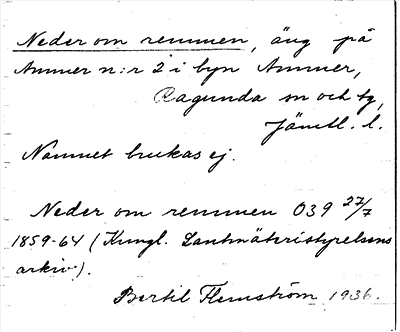 Neder om remmen, äng på
Ammer n:r 2 i byn Ammer,
Ragunda sn och tg,
Jämtl. l.
Namnet brukas ej.
Neder om remmen 039 27/7
1859-64 (Kungl. Lantmäteristyrelsens
arkiv).
Bertil Flemström 1936.